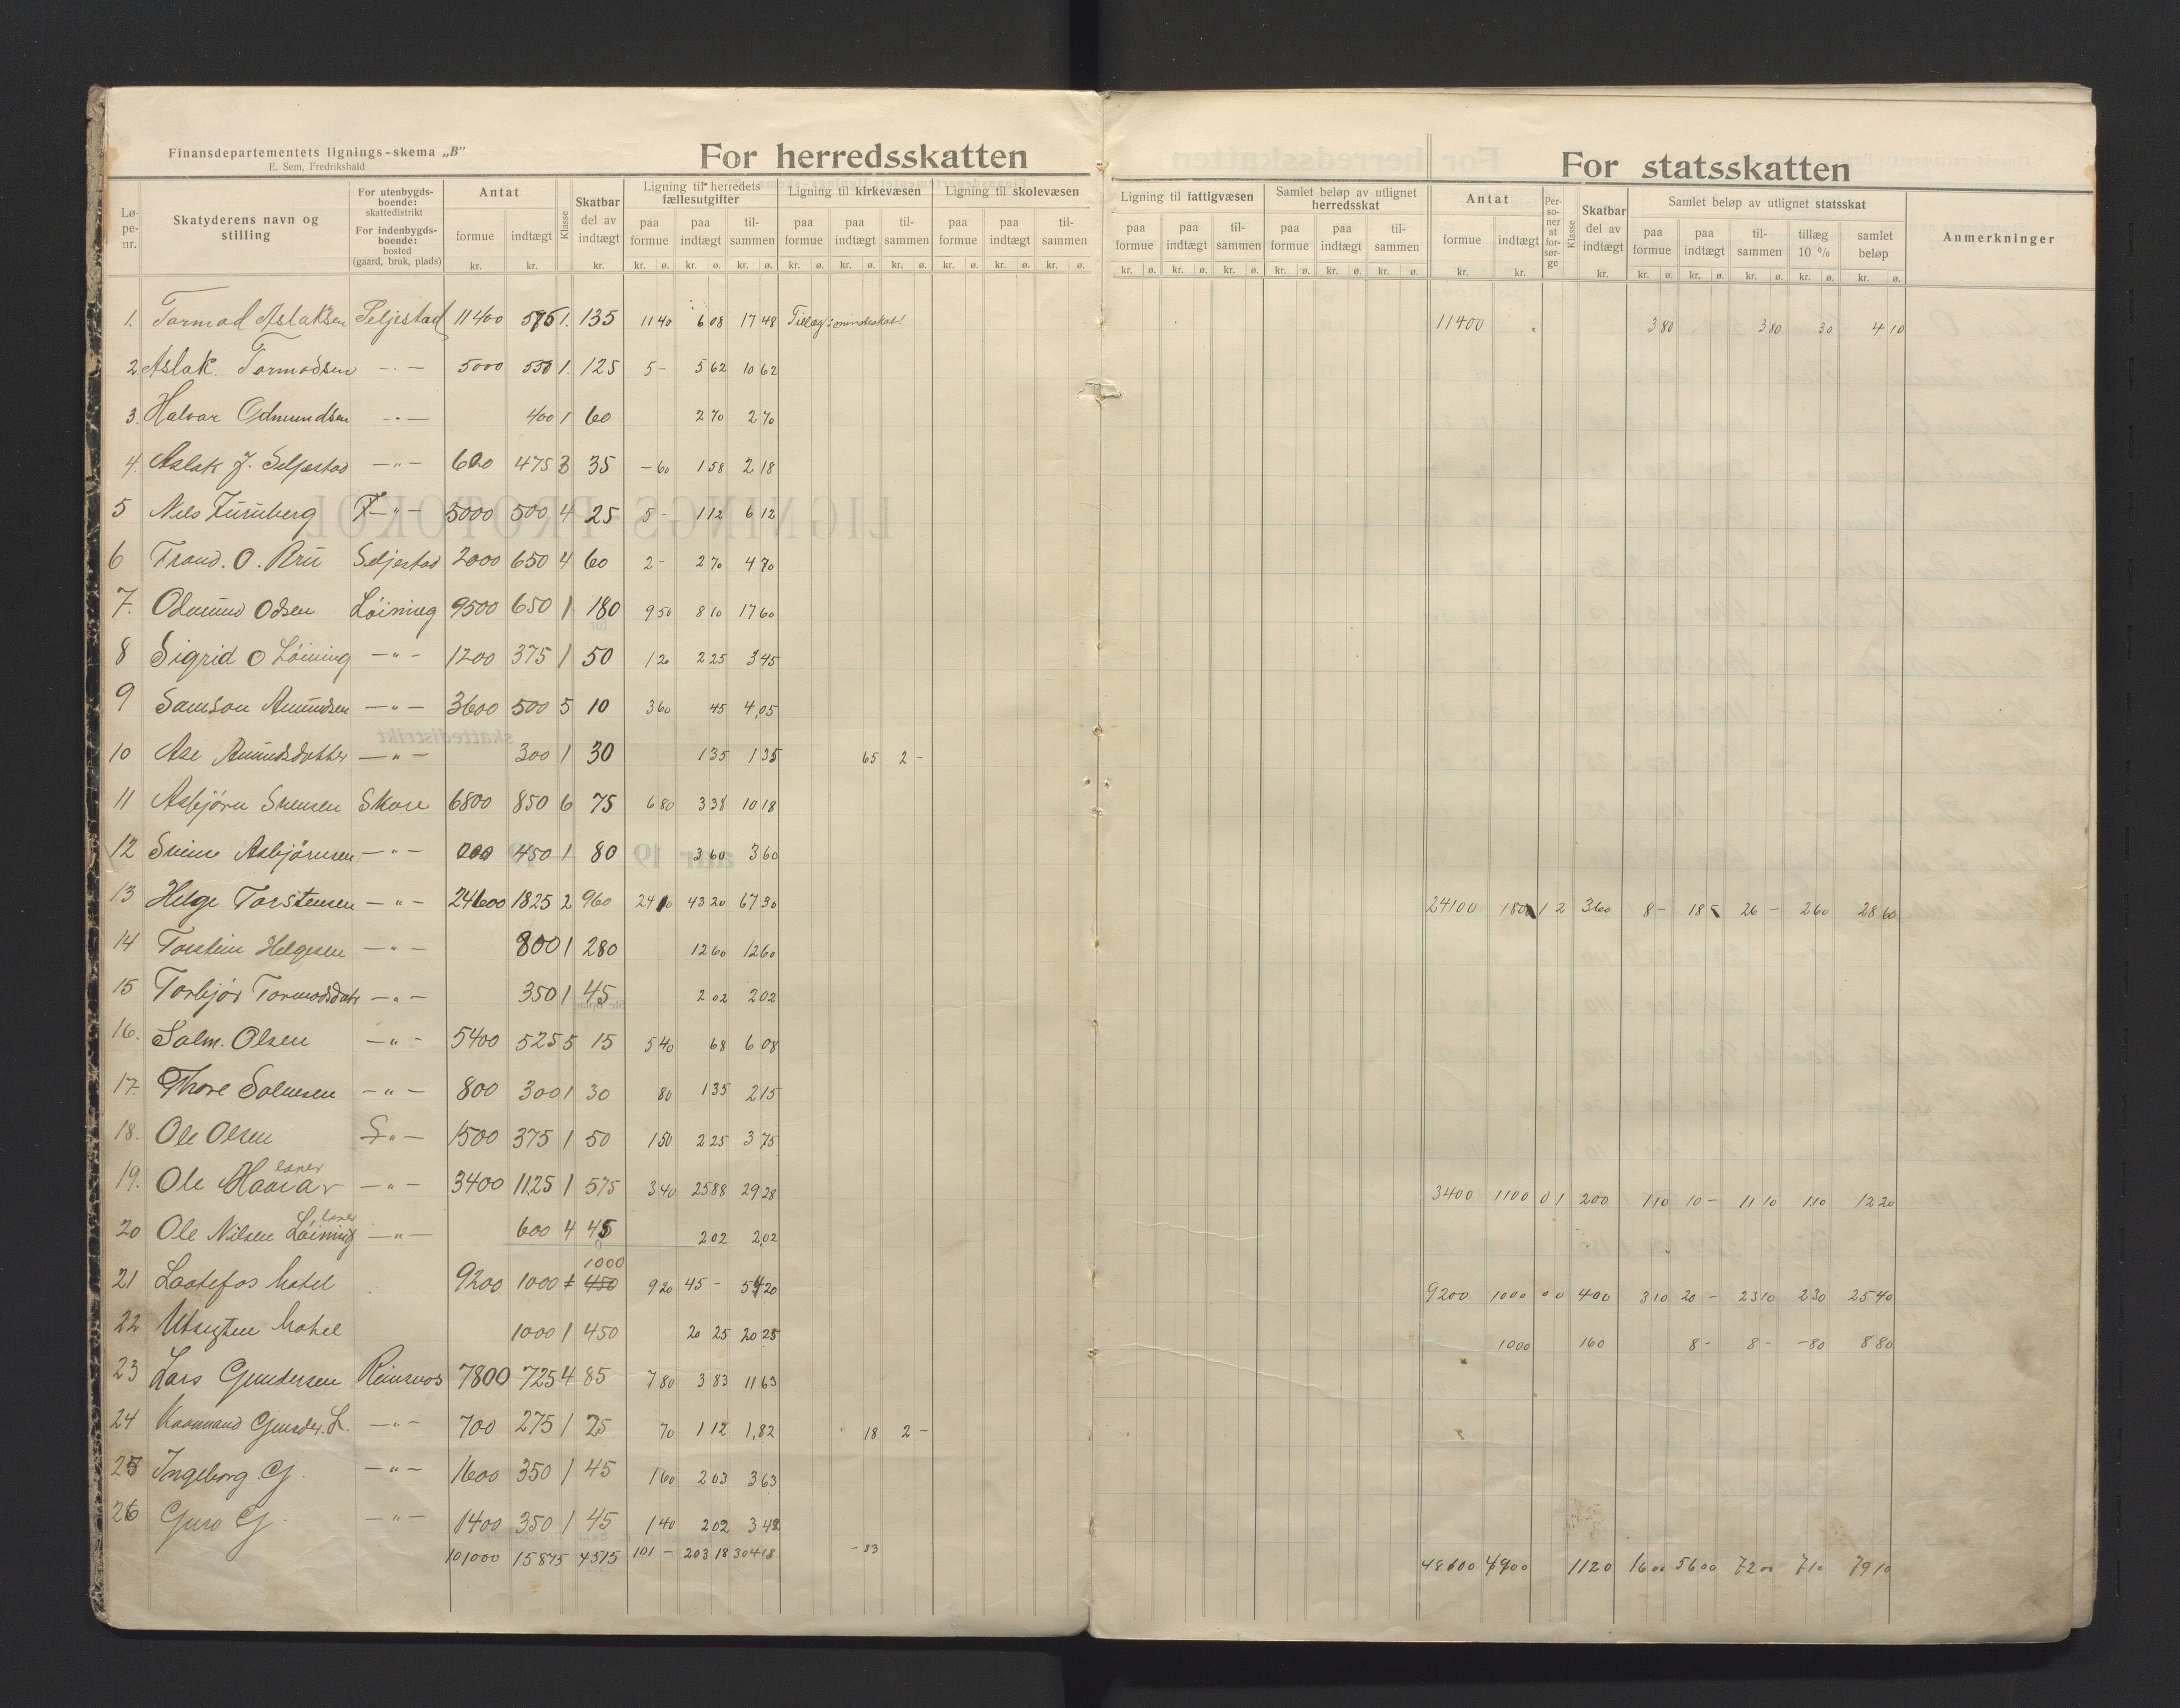 Finansdepartementets lignings-skema „B”
E. Sem, Fredrikshald
For herredsskatten
Lø-pe-nr.
Skatyderens navn og stilling
For utenbygds-boende: skattedistrikt
For indenbygds-boende: bosted (gaard, bruk, plads)
Antat
formue kr.
indtægt kr.
Klasse
Skatbar del av indtægt kr.
Ligning til herredets fællesutgifter
paa formue paa indtægt til-sammen
kr. ø. kr. ø. kr. ø.
Ligning til kirkevæsen
paa formue paa indtægt til-sammen
kr. ø. kr. ø. kr. ø.
Ligning til skolevæsen
paa formue paa indtægt til-sammen
kr. ø. kr. ø. kr. ø.
1. Tormod Aslaksen Seljestad 11400 575 1. 135 11 40 6 08 17 48 Tillæg i
2. Aslak Tormodsen -"- 5000 550 1. 125 5 - 5 62 10 62
3. Halvor Odmundsen -"- 400 1 60 2 70 2 70
4. Aslak J. Seljestad -"- 600 475 3 35 - 60 1 58 2 18
5 Nils -"- 5000 500 4 25 5 - 1 12 6 12
6 Trond. O. Bru Seljestad 2000 650 4 60 2 - 2 70 4 70
7. Odmund Odsen Löining 9500 650 1 180 9 50 8 10 17 60
8 Sigrid O Löining -"- 1200 375 1 50 1 20 2 25 3 45
9 Samson Amundsen -"- 3600 500 5 10 3 60 45 4,05
10 Ase Amundsdatter -"- 300 1 30 1 35 1 35 65 2 -
11 Asbjörn Svensen Skare 6800 850 6 75 6 80 3 38 10 18
12 Asbjörnsen -"- 000 450 1 80 3 60 3 60
13 Helge Torstensen -"- 24100 1825 2 960 24 10 43 20 67 30
14 Torstein Helgesen -"- 800 1 280 12 60 12 60
15 Torbjør Tormodsdatr -"- 350 1 45 2 02 2 02
16. Salm. Olsen -"- 5400 525 5 15 5 40 68 6 08
17. Thore Salmsen -"- 800 300 1 30 80 1 35 2 15
18. Ole Olsen -"- 1500 375 1 50 1 50 2 25 3 75
19. Ole lærer -"- 3400 1125 1 575 3 40 25 88 29 28
20 Ole Nilsen Löining lærer -"- 600 4 45 2 02 2,02
21 Laatefos hotel 9200 1000 1 450 1000 9 20 45 - 54 20
22 Utsigten hotel 1000 1 450 20 25 20 25
23 Lars Gundersen Reinsnos 7800 725 4 85 7 80 3 83 11 63
24 Gunder. L. -"- 700 275 1 25 70 1 12 1,82 18 2 -
25 Ingeborg G. -"- 1600 350 1 45 1 60 2 03 3 63
26 Guro G. -"- 1400 350 1 45 1 40 2 02 3 42
101000 15875 4515 101 - 203 18 304 18 - 83
For statsskatten
Ligning til fattigvæsen
paa formue paa indtægt til-sammen
kr. ø. kr. ø. kr. ø.
Samlet beløp av utlignet herredsskat
paa formue paa indtægt til-sammen
kr. ø. kr. ø. kr. ø.
Antat
formue kr.
indtægt kr.
Per-so-ner at for-sør-ge
Klasse
Skatbar del av indtægt kr.
Samlet beløp av utlignet statsskat
paa formue paa indtægt til-sammen tillæg 10 % samlet beløp
kr. ø. kr. ø. kr. ø. kr. ø. kr. ø.
Anmerkninger
11400 " 3 80 3 80 30 4 10
24100 1800 1 2 360 8 - 18 - 26 - 2 60 28 60
3400 1100 0 1 200 1 10 10 - 11 10 1 10 12 20
9200 1000 0 0 400 3 10 20 - 23 10 2 30 25 40
1000 160 8 - 8 - - 80 8 80
48100 4900 1120 16 00 56 00 72 00 7 10 79 10